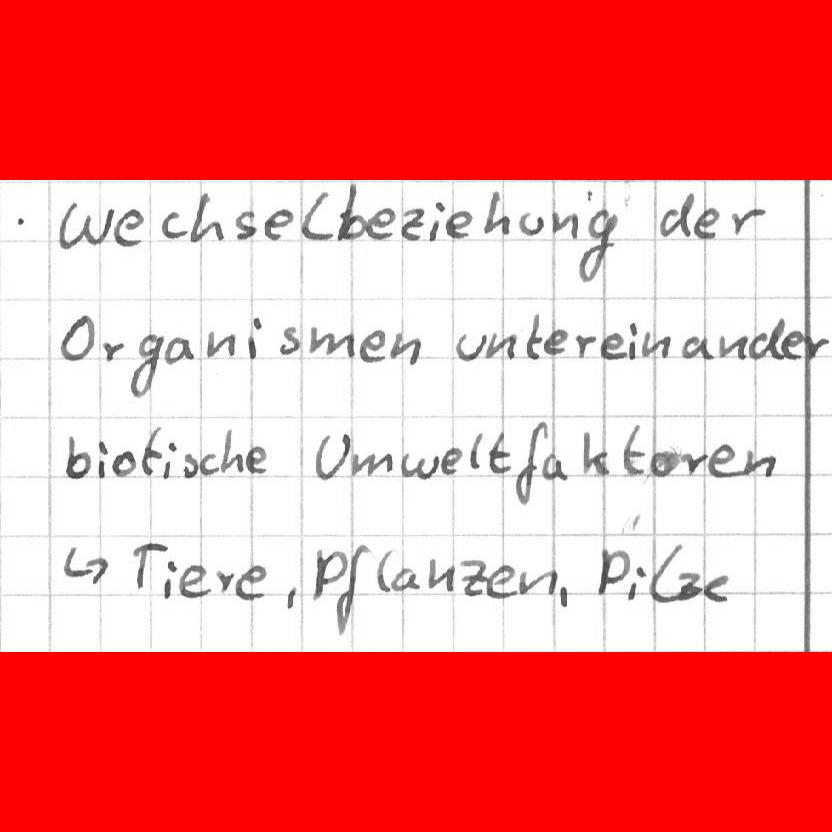 · Wechselbeziehung der
Organismen untereinander
biotische Umweltfaktoren
↳ Tiere, Pflanzen, Pilze